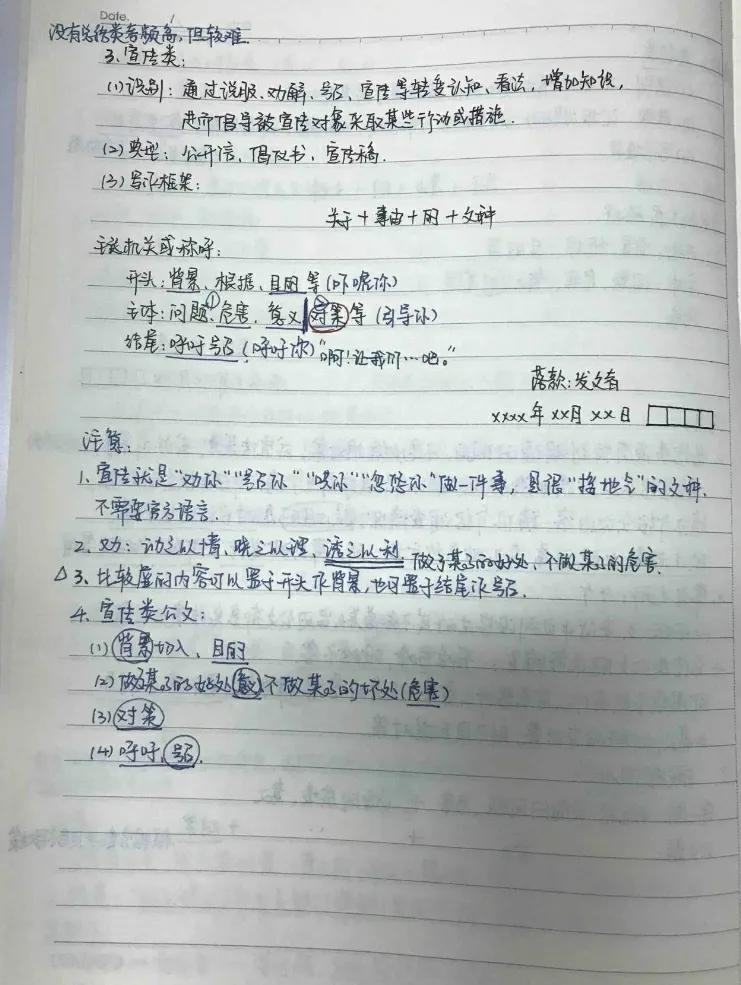 Date.
没有总结类考频高,但较难.
3.宣传类:
(1)识别:通过说服、劝解、号召、宣传等转变认知、看法,增加知识,
进而倡导被宣传对象采取某些行动或措施.
(2)典型:公开信、倡议书、宣传稿.
(3)写作框架:
关于+事由+的+文种
主送机关或称呼:
开头:背景、根据、目的等(吓唬你)
主体:问题、①危害、意义 ②对策等(引导你)
结尾:呼吁号召(呼吁你)"啊!让我们…吧。"
落款:发文者
xxxx年xx月xx日
注意:
1.宣传就是"劝你""号召你""哄你""忽悠你"做一件事,是很"接地气"的文种.
不需要官方语言.
2.劝:动之以情、晓之以理、诱之以利.做了某事的好处,不做某事的危害.
△3.比较虚的内容可以置于开头作背景,也可置于结尾作号召.
4.宣传类公文:
(1)背景切入、目的
(2)做某事的好处(意义)不做某事的坏处(危害)
(3)对策
(4)呼吁、号召.